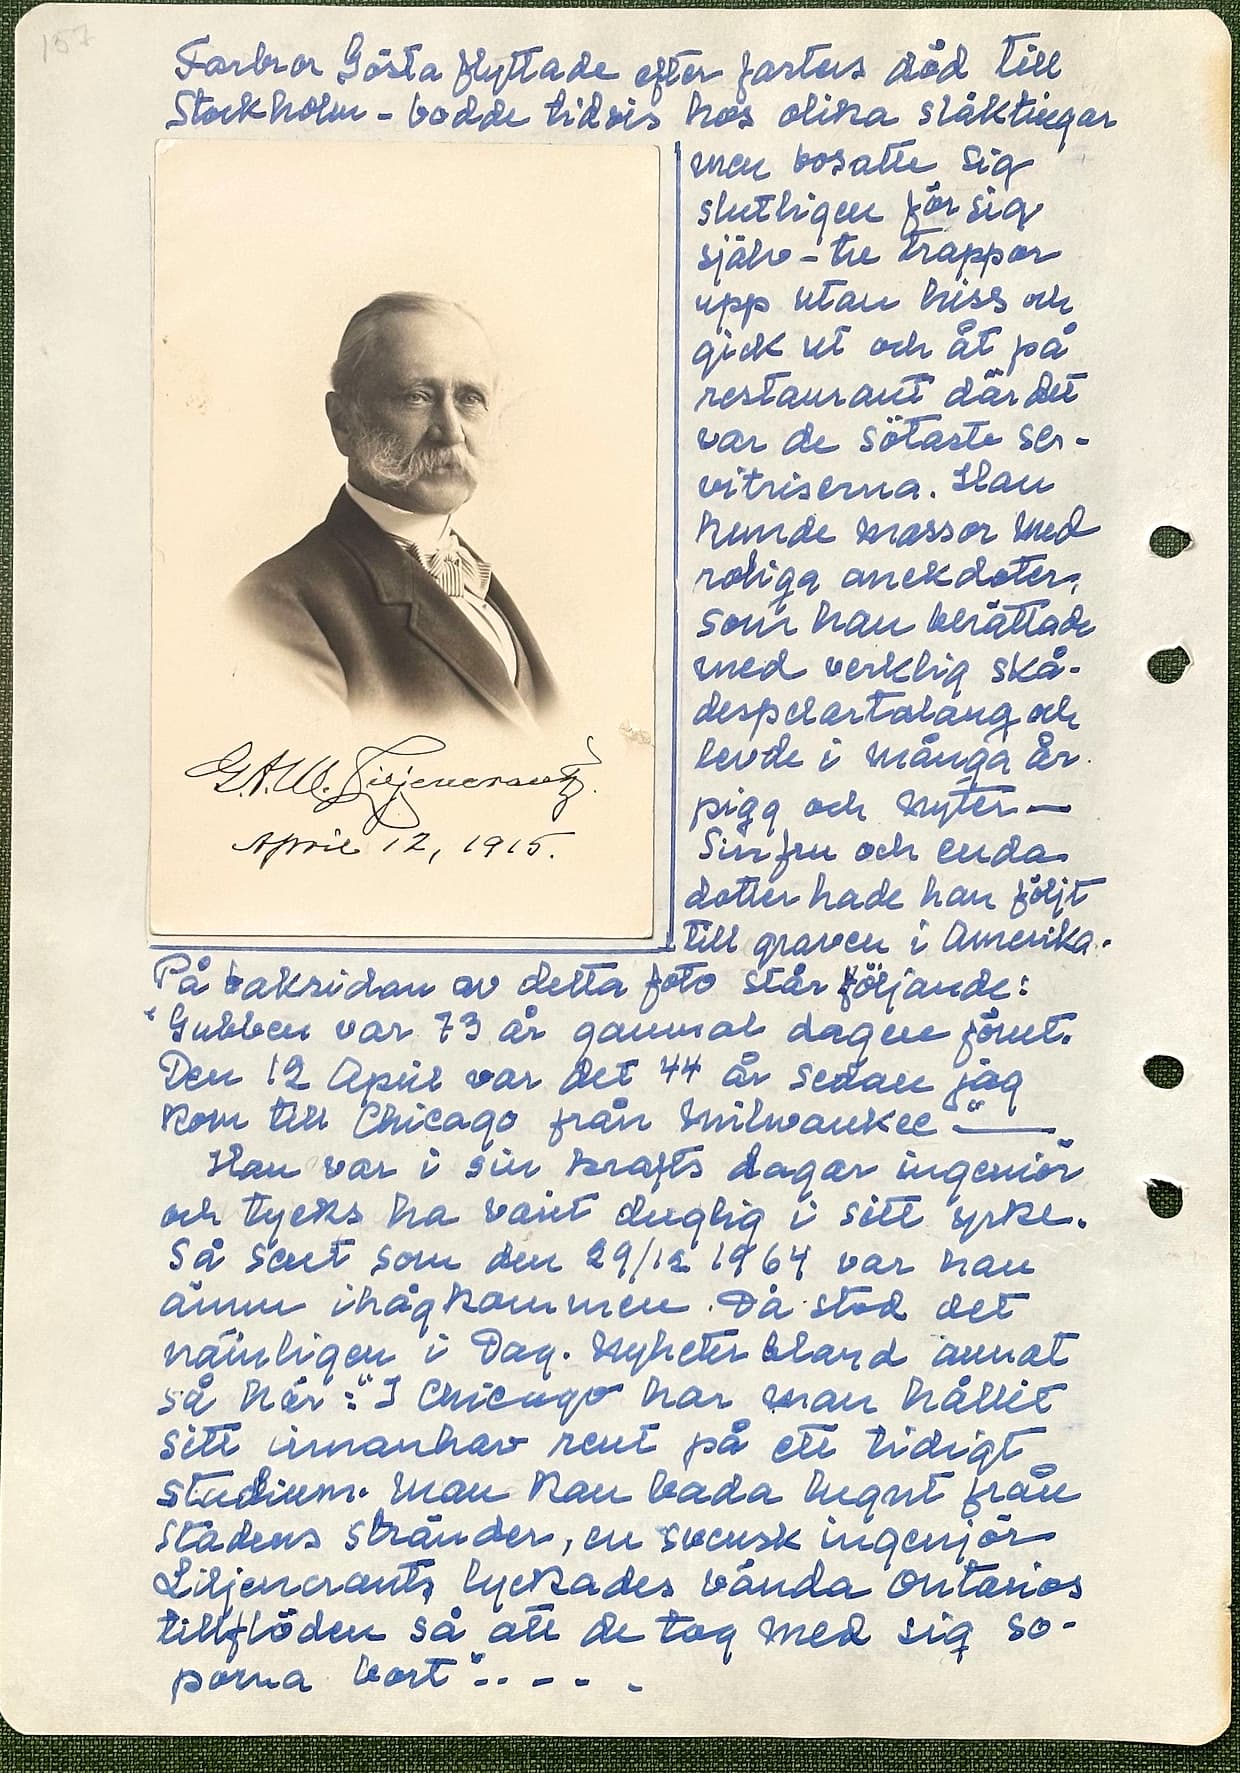 157
Farbror Gösta flyttade efter fasters död till
Stockholm - bodde tidvis hos olika släktingar
men bosatte sig
slutligen för sig
själv - tre trappor
upp utan hiss och
gick ut och åt på
restaurant där det
var de sötaste ser-
vitriserna. Han
kunde massor med
roliga anekdoter,
som han berättade
med verklig skå-
despelartalang och
levde i många år
pigg och nyter —
Sin fru och enda
dotter hade han följt
till graven i Amerika.
G.A.M. Liljencrantz.
April 12, 1915.
På baksidan av detta foto står följande:
"Gubben var 73 år gammal dagen förut.
Den 12 April var det 44 år sedan jag
kom till Chicago från Milwaukee" —
Han var i sin krafts dagar ingeniör
och tycks ha varit duglig i sitt yrke.
Så sent som den 29/12 1964 var han
ännu ihågkommen. Då stod det
nämligen i Dag. Nyheter bland annat
så här: "I Chicago har man hållit
sitt innanhav rent på ett tidigt
studium. Man kan bada lugnt från
stadens stränder, en svensk ingenjör
Liljencrants lyckades vända Ontarios
tillflöden så att de tog med sig so-
porna bort" - - - -